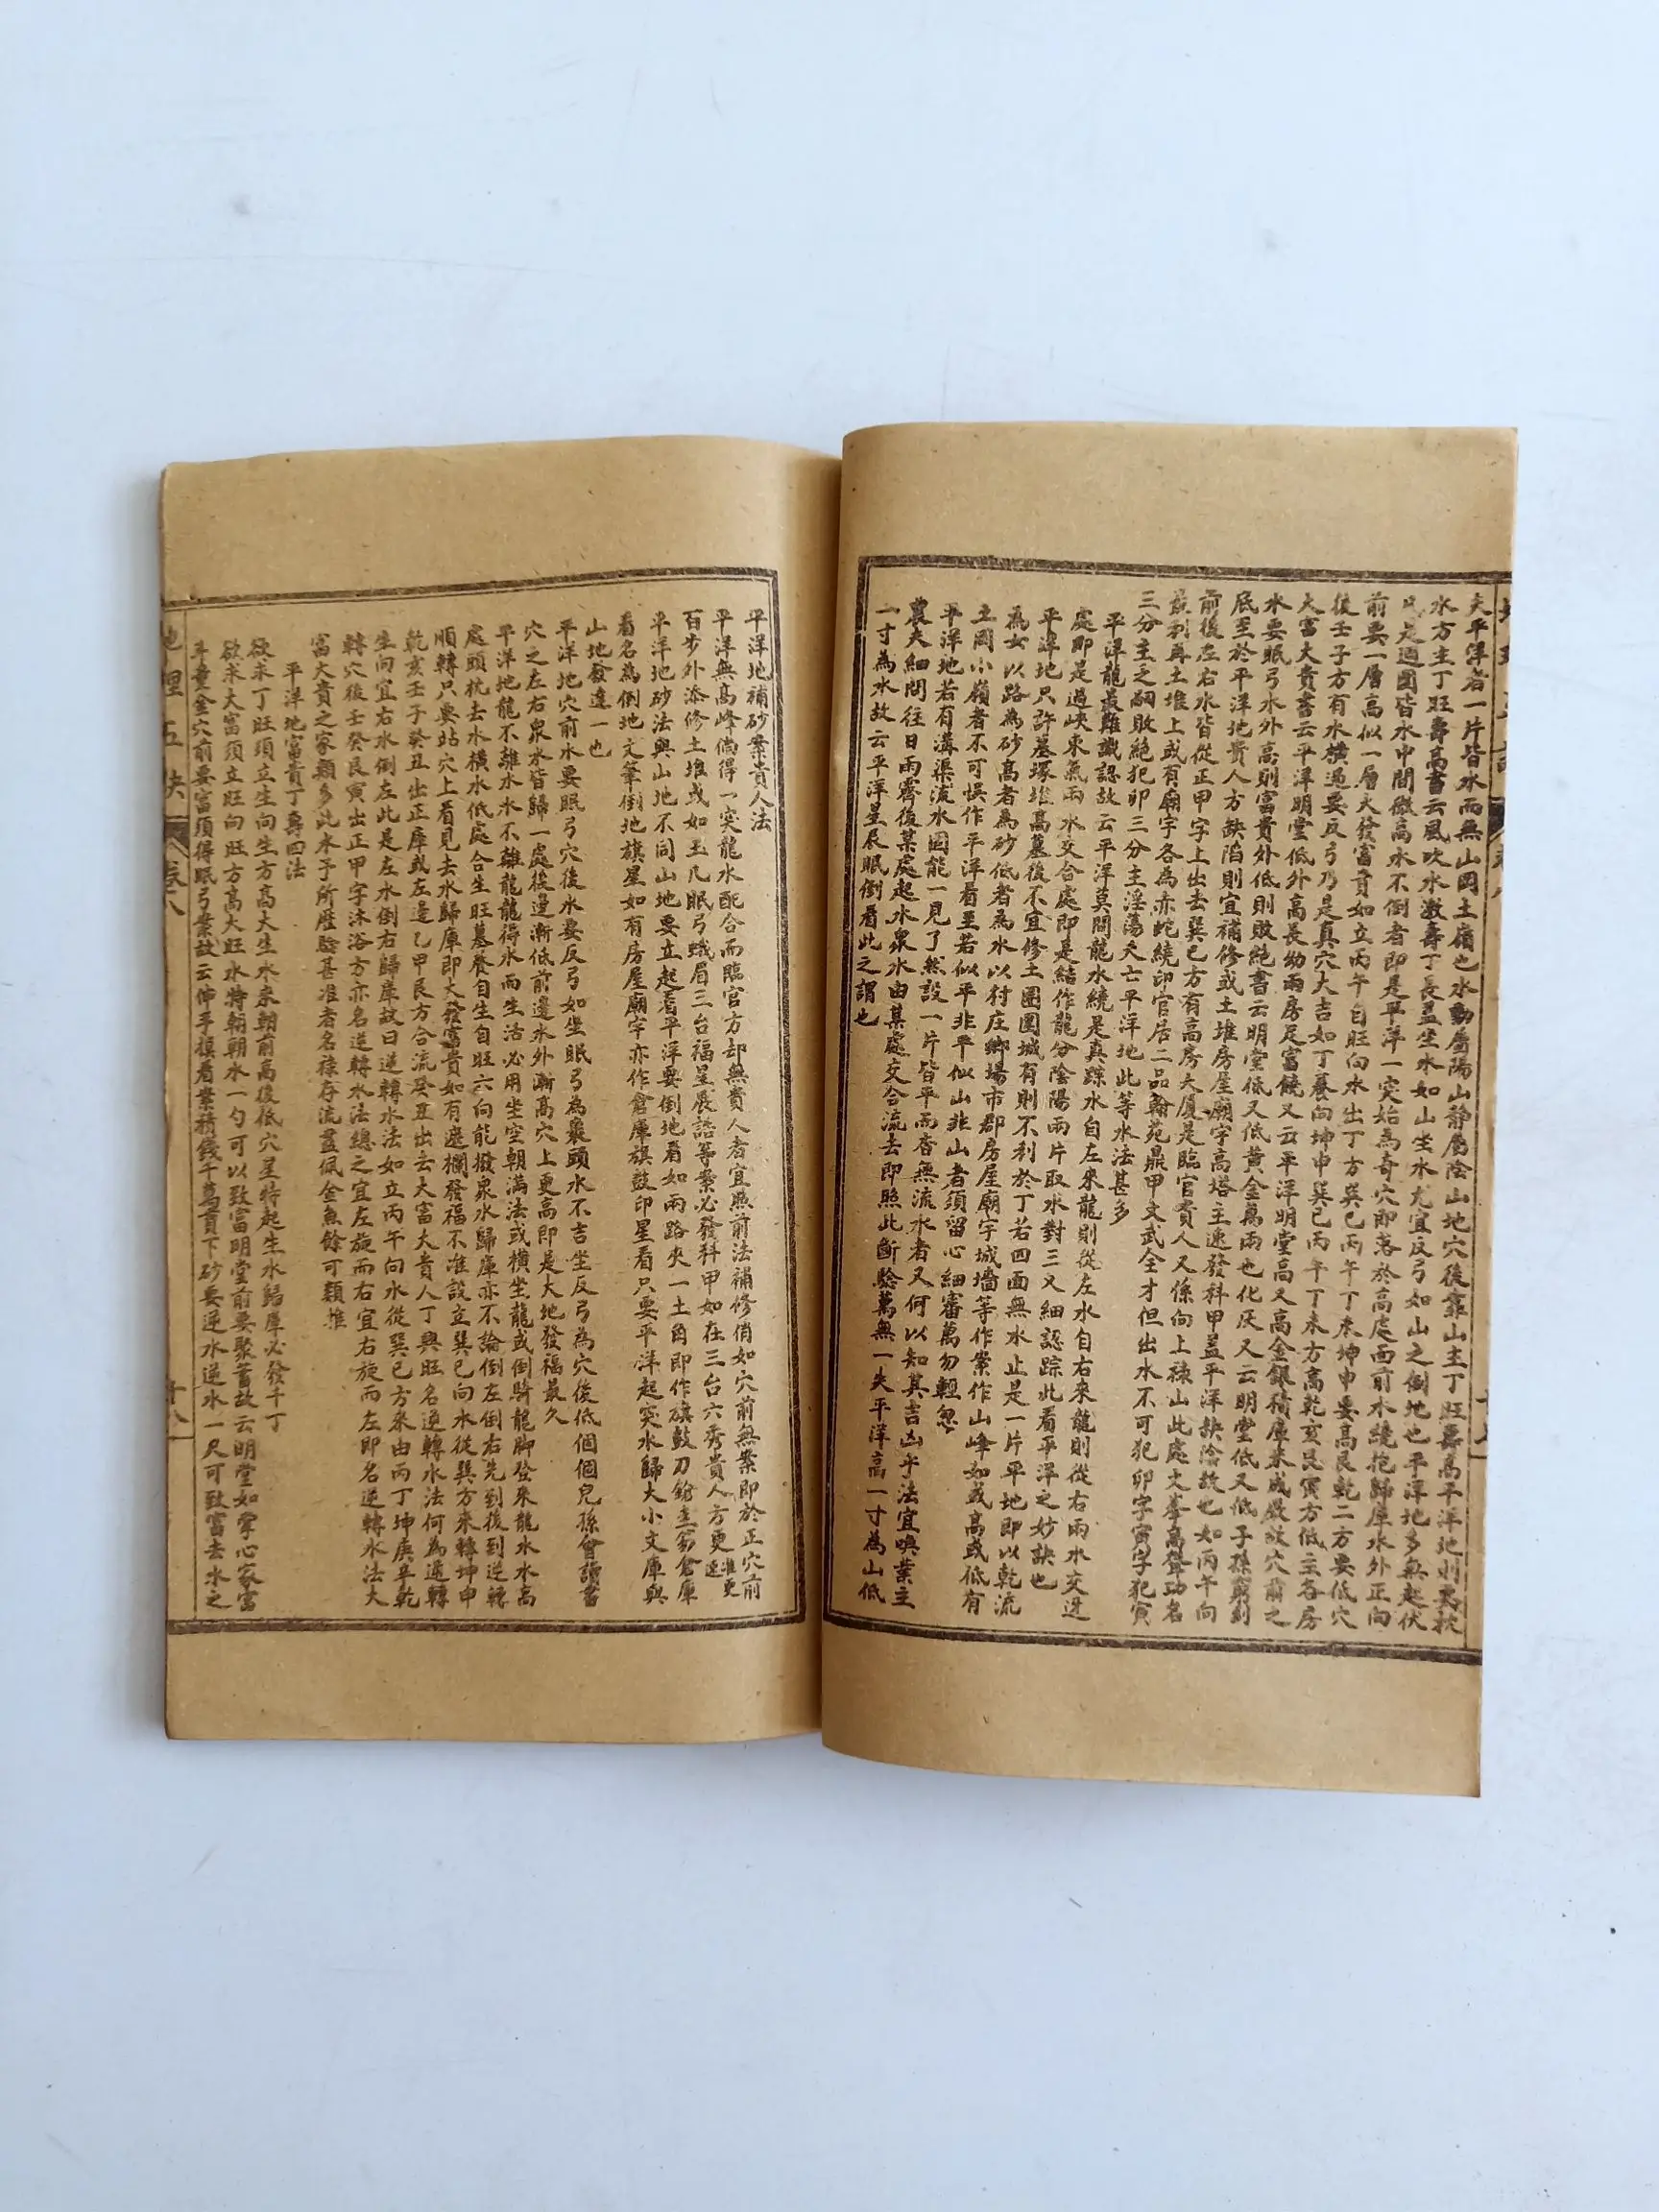 夫平洋者一片皆水而無山岡土嶺也水動屬陽山静屬陰山地穴後靠山主丁旺壽高平洋地則要
水方主丁旺壽高書云風吹水激壽丁長盖坐水如山坐水尤宜反弓如山之倒地也平洋地多無起伏
是週圍皆水中間微高水不倒者即是平洋一突始為奇穴即落於高處面前水繞抱歸庫水外正向
前要一層高似一層大發富貴如立丙午自旺向水出丁方巽巳丙午丁未坤申要高艮乾二方要低穴
後壬子方有水横過要反弓乃是真穴大吉如丁養向坤申巽巳丙午丁未方高乾亥艮寅方低主各房
大富大貴書云平洋明堂低外高長幼兩房足富饒又云平洋明堂高又高金銀積庫米成廒故穴前之
水要眠弓水外高則富貴外低則敗絶書云明堂低又低黄金萬兩也化灰又云明堂低又低子孫窮到
底至於平洋地貴人方缺陷則宜補修或土堆房屋廟宇高塔主速發科甲盖平洋缺陰故也如丙午向
前後左右水皆從正甲字上出去巽巳方有高房大厦是臨官貴人又係向上禄山此處大峯高聳功名
最利再土堆上或有廟宇各為赤蛇繞印官居二品翰苑鼎甲文武全才但出水不可犯卯字寅字犯寅
三分主之嗣敗絶犯卯三分主淫蕩夭亡平洋地此等水法甚多
平洋龍最難識認故云平洋莫問龍水繞是真踪水自左來龍則從左水自右來龍則從右兩水交迓
處即是過峽束氣兩水交合處即是結作龍分陰陽兩片取水對三叉細認踪此看平洋之妙訣也
平洋地只許墓塚堆高墓後不宜修土圍圍城有則不利於丁若四面無水止是一片平地即以乾流
為女以路為砂高者為砂低者為水以村庄鄉場市郡房屋廟宇城墙等作案作山峰如或高或低有
土岡小嶺者不可悮作平洋看至若似平非平似山非山者須留心細審萬勿輕忽
平洋地若有溝渠流水固能一見了然設一片皆平而杳無流水者又何以知其吉凶乎法宜喚業主
農夫細問往日雨霽後某處起水泉水由某處交合流去即照此斷驗萬無一失平洋高一寸為山低
一寸為水故云平洋星辰眠倒看此之謂也
平洋地補砂案貴人法
平洋無高峰倘得一突龍水配合而臨官方却無貴人者宜照前法補修俏如穴前無案即於正穴前
百步外添修土堆或如玉几眠弓蛾眉三台福星展誥等案必發科甲如在三台六秀貴人方更準更速
平洋地砂法與山地不同山地要立起看平洋要倒地看如兩路夾一土角即作旗鼓刀鎗圭笏倉庫
看名為倒地文筆倒地旗星如有房屋廟宇亦作倉庫旗鼓印星看只要平洋起突水歸大小文庫與
山地發達一也
平洋地穴前水要眠弓穴後水要反弓如坐眠弓為裹頭水不吉坐反弓為穴後低個個兒孫會讀書
穴之左右泉水皆歸一處後邊漸低前邊水外漸高穴上更高即是大地發福最久
平洋地龍不離水水不離龍龍得水而生活必用坐空朝滿法或横坐龍或倒騎龍脚登來龍水水高
處頭枕去水横水低處合生旺墓養自生自旺六向能撥泉水歸庫亦不論倒左倒右先到後到逆轉
順轉只要站穴上看見去水歸庫即大發富貴如有遮攔發福不准設立巽巳向水從巽方來轉坤申
乾亥壬子癸丑出正庫或左邊乙甲艮方合流癸丑出去大富大貴人丁興旺名逆轉水法何為逆轉
生向宜右水倒左此是左水倒右歸庫故曰逆轉水法如立丙午向水從巽巳方來由丙丁坤庚辛乾
轉穴後壬癸艮寅出正甲字沐浴方亦名逆轉水法總之宜左旋而右宜右旋而左即名逆轉水法大
富大貴之家頴多此本于所歷驗甚准者名祿存流盡佩金魚餘可類推
平洋地富貴丁壽四法
欲求丁旺須立生向生方高大生水來朝前高後低穴星特起生水歸庫必發千丁
欲求大富須立旺向旺方高大旺水特朝朝水一勺可以致富明堂前要聚蓄故云明堂如掌心家富
斗量金穴前要富須得眠弓案故云伸手摸着案積錢千萬貫下砂要逆水逆水一尺可致富去水之
地理五訣
卷八
十八